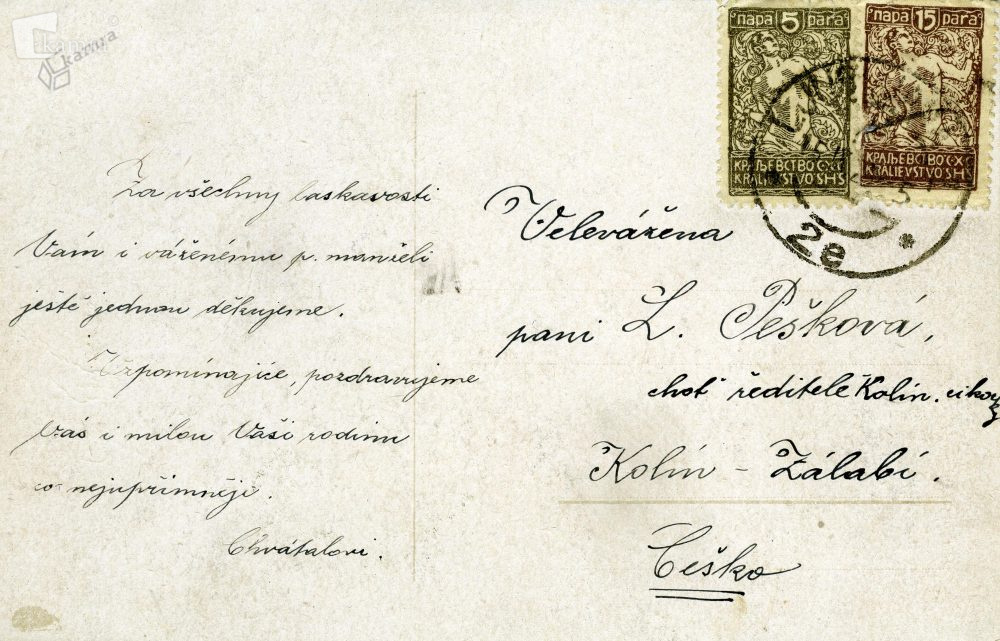 kamra
пара 5 para
пара 15 para
КРАЉЕВСТВО С·Х·С
KRALJEVSTVO SHS
КРАЉЕВСТВО С·Х·С
KRALJEVSTVO SHS
2e *
Za všechny laskavosti
Vám i váženému p. manželi
ještě jednou děkujeme.
Vzpomínajíce, pozdravujeme
Vás i milou Vaši rodinu
co nejupřímněji.
Chvátalovi.
Velevážena
pani L. Pešková,
choť ředitele Kolín.
Kolín - Zálabí.
Česko